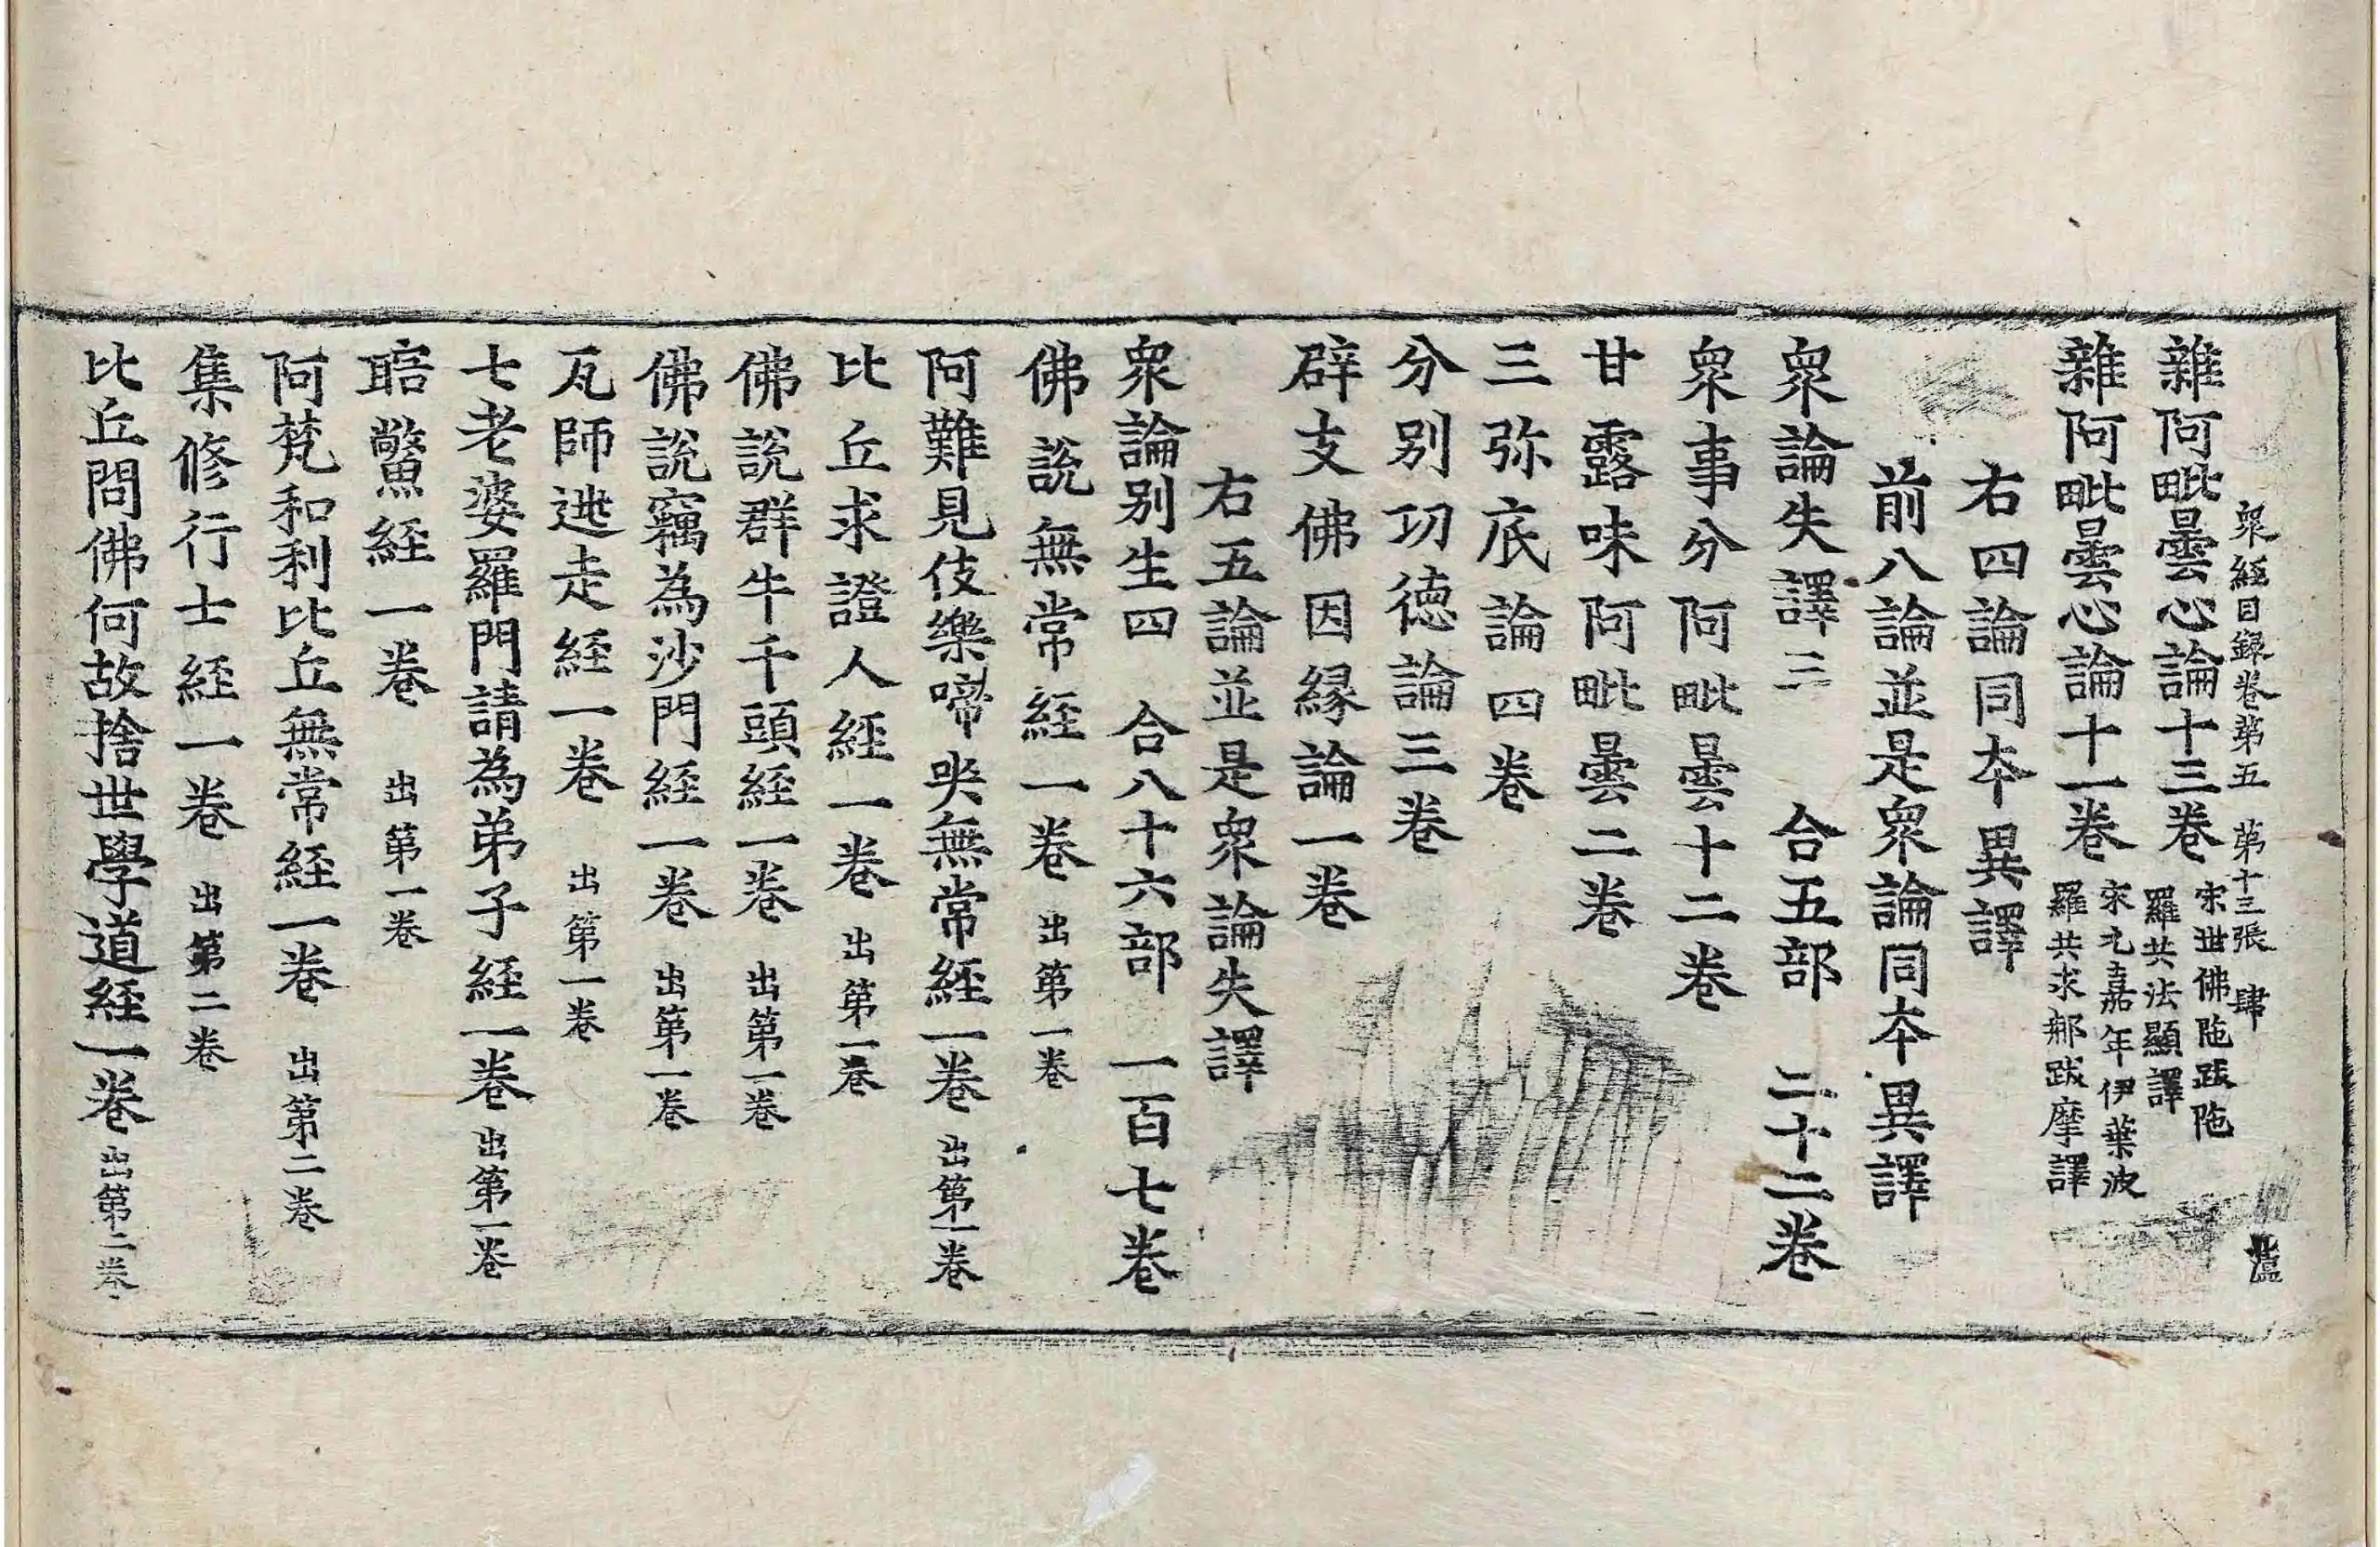 雜阿毗曇心論十三卷 宋世佛陁跋陁羅共法顯譯
衆經目録卷第五 第十三張 肆
雜阿毗曇心論十一卷 宋元嘉年伊葉波羅共求那跋摩譯
右四論同本異譯
前八論並是衆論同本異譯
衆論失譯三 合五部 二十二卷
衆事分阿毗曇十二卷
甘露味阿毗曇二卷
三弥底論四卷
分别功德論三卷
辟支佛因緣論一卷
右五論並是衆論失譯
衆論别生四 合八十六部 一百七卷
佛說無常經一卷 出第一卷
阿難見伎樂啼哭無常經一卷 出第一卷
比丘求證人經一卷 出第一卷
佛說群牛千頭經一卷 出第一卷
佛說竊為沙門經一卷 出第一卷
瓦師逃走經一卷 出第一卷
七老婆羅門請為弟子經一卷 出第一卷
䁱鱉經一卷 出第一卷
阿梵和利比丘無常經一卷 出第二卷
集修行士經一卷 出第二卷
比丘問佛何故捨世學道經一卷 出第二卷